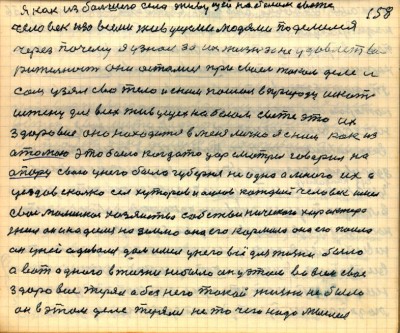 158
Я как из большего села живущей на белом свете
человек изо всеми живущими людями поделился
через почему я узнал за их жизнь не удовлетво
рительность они остались при своем таком деле и
сам узял сво тело и с ним пошел в природу искать
истену для всех живущех на белом свете это их
здоровие оно находится в меня лично я с ним как из
это было когдато цар смотри говорил на
свою у него было губерния не одна а много их а
уездов сколько сел хуторов и каждый человек имел
свое маленькое хазяиство собственического характера
жил он и надеялся на землю она его кормила она его поила
он у ней одевался дом имел у него всё для жизни было
а вот одного в жизни небыло он утеял во всем свое
здоровие терял а без него такой жизни не было
он в этом деле терял не то чего надо